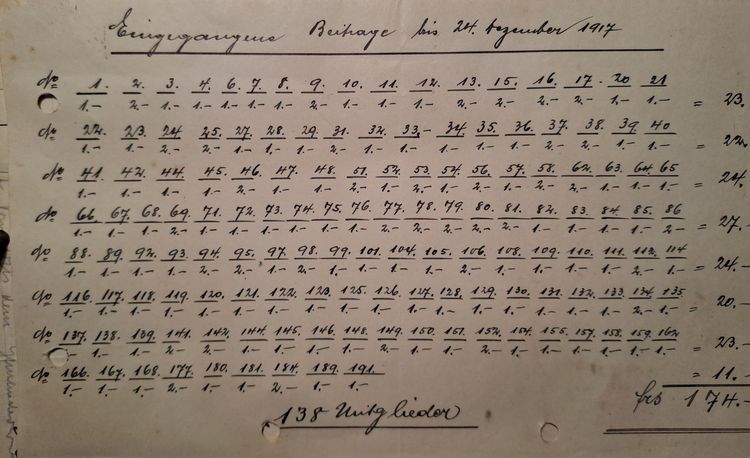 Eingegangene Beiträge bis 24. Dezember 1917
No 1. 2. 3. 4. 6. 7. 8. 9. 10. 11. 12. 13. 15. 16. 17. 20 21
1.- 2.- 1.- 1.- 1.- 1.- 1.- 2.- 1.- 1.- 1.- 2.- 2.- 2.- 2.- 1.- 1.- = 23.
No 22. 23. 24 25. 27. 28. 29. 31. 32. 33. 34 35. 36. 37. 38. 39 40
1.- 1.- 2.- 2.- 1.- 1.- 1.- 2.- 1.- 1.- 1.- 1.- 1.- 2.- 2.- 1.- 1.- = 22.-
No 41. 42. 44. 45. 46. 47. 48. 51. 52. 53. 54. 56. 57. 58. 62. 63. 64. 65
1.- 1.- 1.- 1.- 2.- 1.- 1.- 2.- 1.- 2.- 1.- 2.- 2.- 1.- 2.- 1.- 1.- 1.- = 24.-
No 66. 67. 68. 69. 71. 72. 73. 74. 75. 76. 77. 78. 79. 80. 81. 82. 83. 84. 85. 86
1.- 1.- 1.- 2.- 1.- 1.- 1.- 1.- 1.- 1.- 2.- 2.- 2.- 2.- 2.- 1.- 1.- 1.- 1.- 2.- = 27.-
No 88. 89. 92. 93. 94. 95. 97. 98. 99. 101. 104. 105. 106. 108. 109. 110. 111. 112. 114
1.- 1.- 1.- 1.- 2.- 2.- 1.- 2.- 1.- 1.- 1.- 1.- 2.- 1.- 1.- 1.- 1.- 2.- 1.- = 24.-
No 116. 117. 118. 119. 120. 121. 122. 123. 125. 126. 127. 128. 129. 130. 131. 132. 133. 134. 135.
1.- 1.- 1.- 1.- 1.- 1.- 1.- 1.- 1.- 1.- 1.- 1.- 1.- 1.- 1.- 1.- 1.- 2.- 1.- = 20.-
No 137. 138. 139. 141. 142. 144. 145. 146. 148. 149. 150. 151. 152. 154. 155. 157. 158. 159. 162.
1.- 1.- 2.- 1.- 2.- 1.- 1.- 1.- 1.- 2.- 1.- 1.- 2.- 1.- 1.- 1.- 1.- 1.- 1.- = 23.-
No 166. 167. 168. 177. 180. 181. 184. 189. 191.
1.- 1.- 1.- 2.- 1.- 1.- 2.- 1.- 1.- = 11.-
frs 174.-
138 Mitglieder